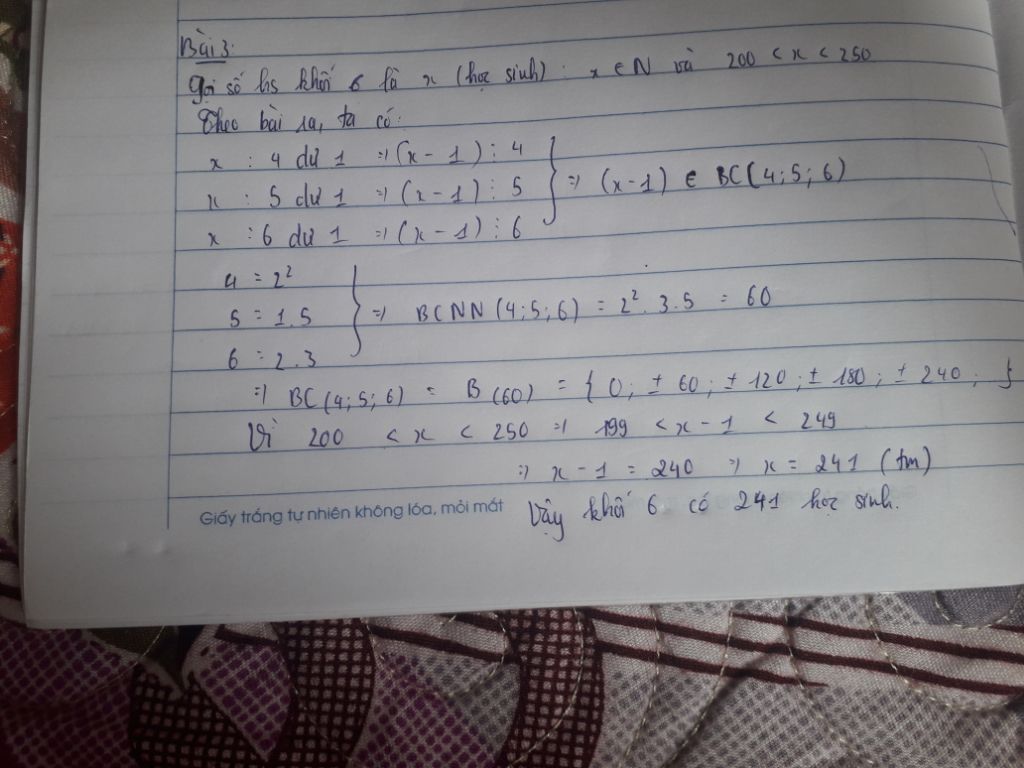 Bài 3:
Gọi số hs khối 6 là x (học sinh): x ∈ N và 200 < x < 250
Theo bài ra, ta có:
x : 4 dư 1 => (x - 1) ⋮ 4
x : 5 dư 1 => (x - 1) ⋮ 5 } => (x-1) ∈ BC(4;5;6)
x : 6 dư 1 => (x - 1) ⋮ 6
4 = 2²
5 = 1.5 } => BCNN(4;5;6) = 2².3.5 = 60
6 = 2.3
=> BC(4;5;6) = B(60) = { 0; ±60; ±120; ±180; ±240; }
Vì 200 < x < 250 => 199 < x - 1 < 249
=> x - 1 = 240 => x = 241 (tm)
Vậy khối 6 có 241 học sinh.
Giấy trắng tự nhiên không lóa, mỏi mắt